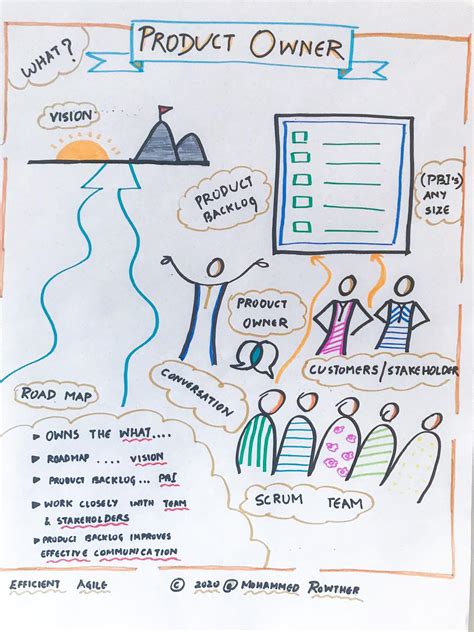 PRODUCT OWNER
WHAT?
VISION
PRODUCT
BACKLOG
(PBI'S)
ANY
SIZE
PRODUCT
OWNER
CONVERSATION
CUSTOMERS/STAKEHOLDER
ROAD MAP
SCRUM TEAM
▸ OWNS THE WHAT....
▸ ROADMAP .... VISION
▸ PRODUCT BACKLOG... PBI
▸ WORK CLOSELY WITH TEAM
& STAKEHOLDERS
▸ PRODUCT BACKLOG IMPROVES
EFFECTIVE COMMUNICATION
EFFICIENT AGILE © 2020 @ MOHAMMED ROWTHER